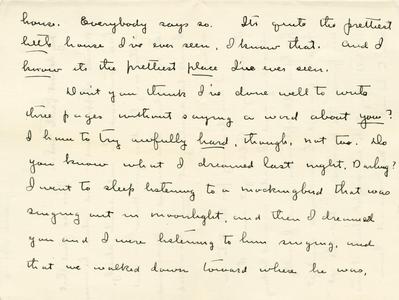 house. Everybody says so. It's quite the prettiest
little house I've ever seen, I know that. And I
know its the prettiest place I've ever seen.
Don't you think I've done well to write
three pages without saying a word about you?
I have to try awfully hard, though, not to. Do
you know what I dreamed last night, Darling?
I went to sleep listening to a mockingbird that was
singing out in moonlight, and then I dreamed
you and I were listening to him singing, and
that we walked down toward where he was,